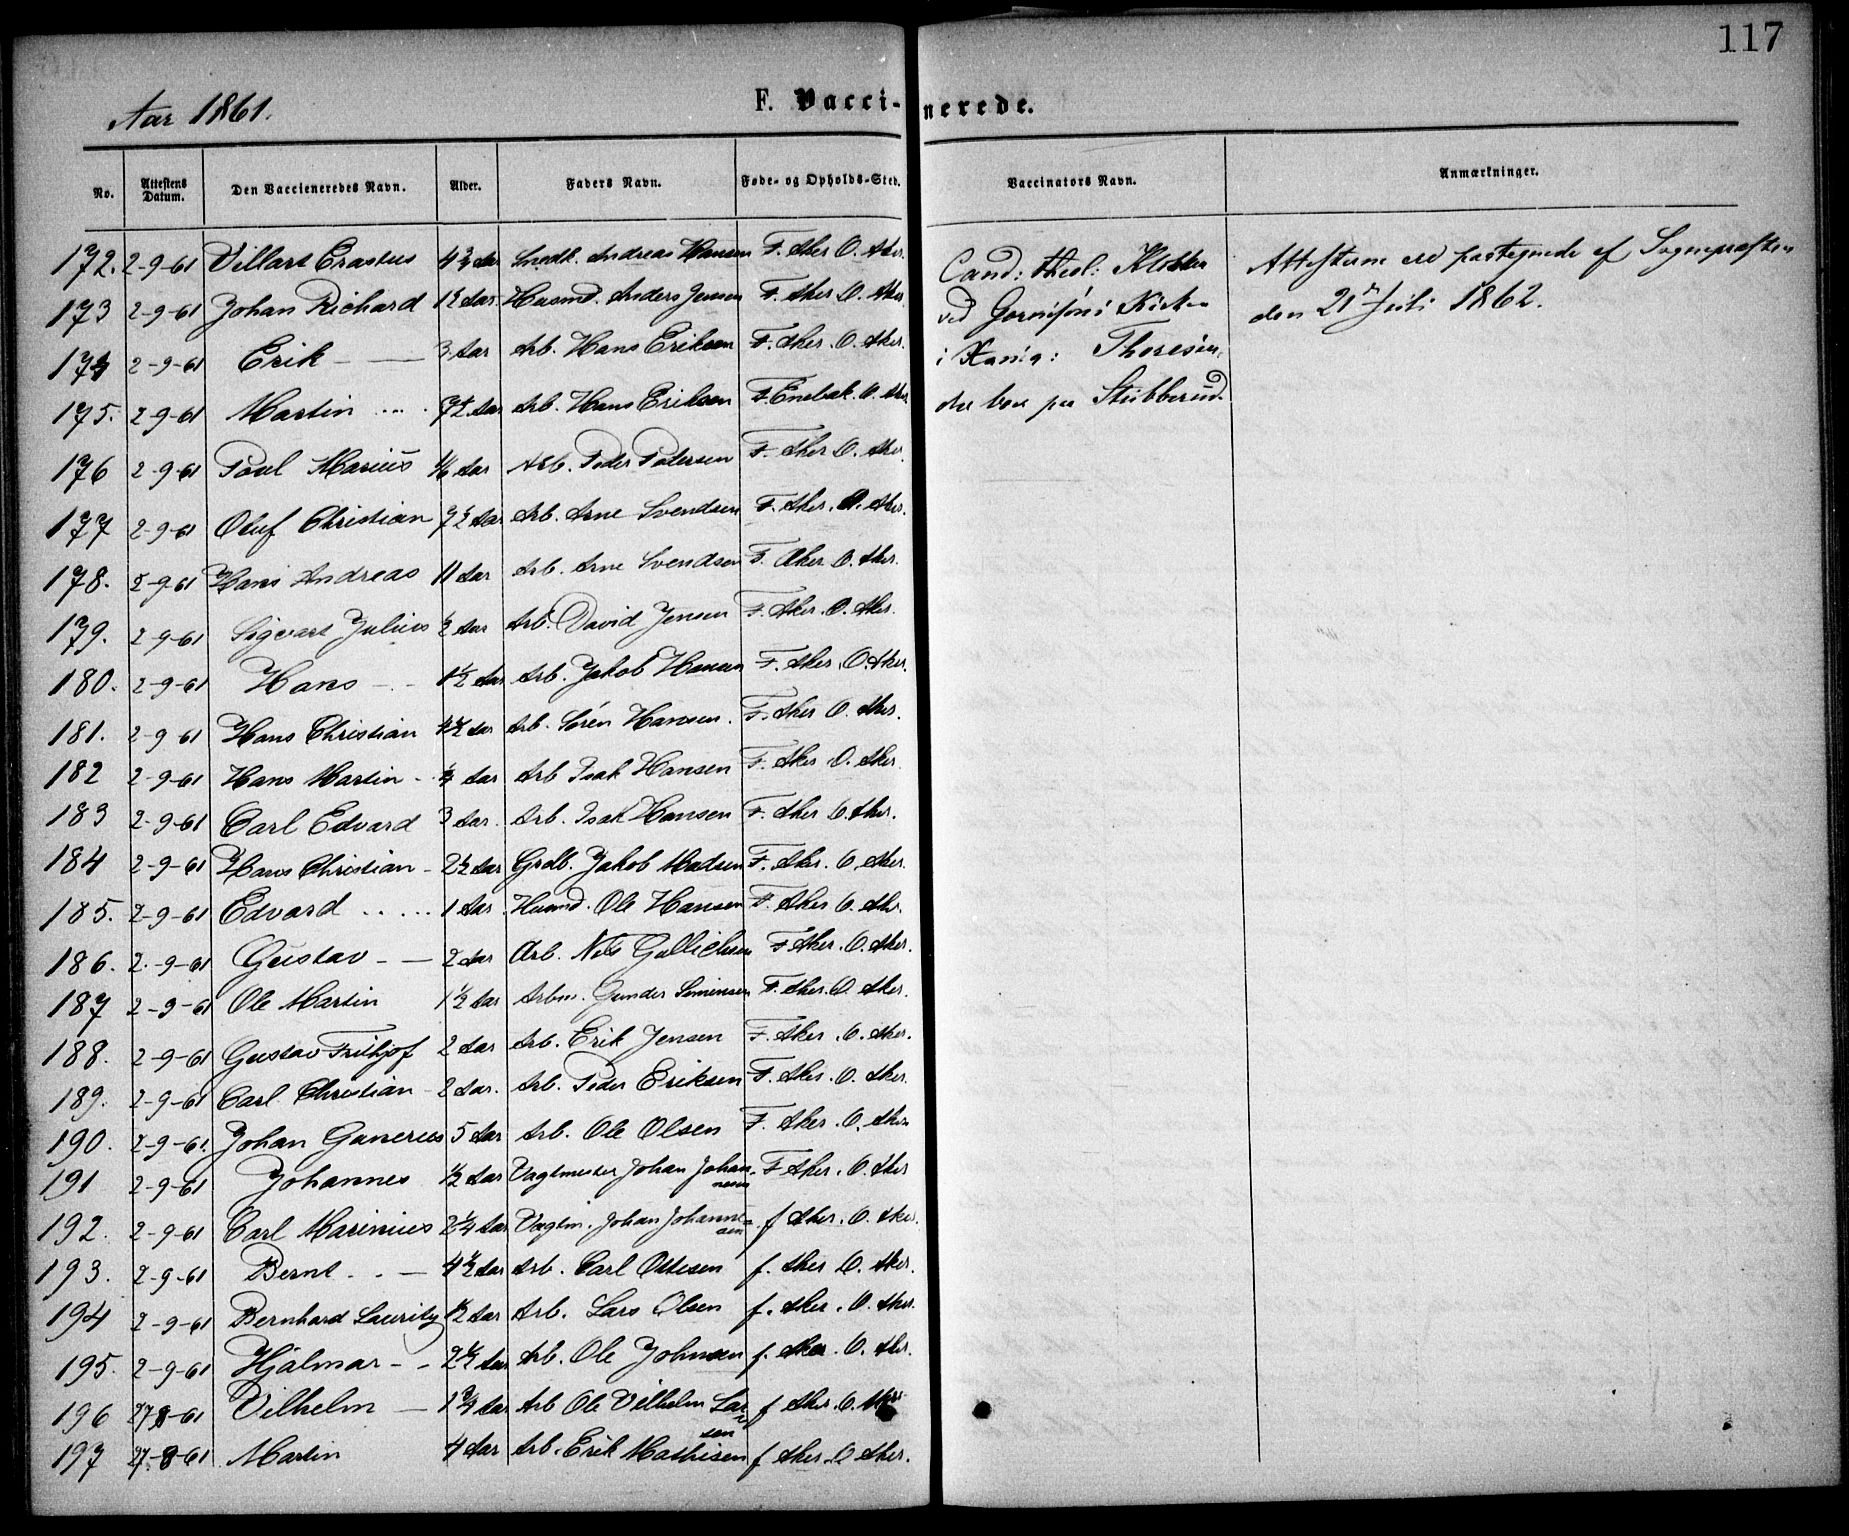 117
Aar 1861.
F. Vacci-nerede.
No. Attestens Datum. Den Vaccieneredes Navn. Alder. Faders Navn. Føde- og Opholds-Sted. Vaccinators Navn. Anmærkninger.
172. 2-9-61 Villart Erastus 4 3/4 Aar Andreas Hansen F. Aker O. Aker.
173 2-9-61 Johan Richard Aar. Husmd. Anders Jensen F. Aker O. Aker
174 2-9-61 Erik 3 Aar Arb. Hans Eriksen F. Aker O. Aker.
175. 2-9-61 Martin Aar Arb. Hans Eriksen F. Enebak O. Aker
176 2-9-61 Poul Marius Aar Arb. Peder Pedersen F. Aker O. Aker.
177 2-9-61 Oluf Christian 7 1/2 Aar Arb. Arne Svendsen F. Aker. O. Aker.
178. 2-9-61 Hans Andreas 11 Aar Arb. Arne Svendsen F. Aker O. Aker.
179. 2-9-61 Sigvart Julius 1/2 Aar Arb. David Jensen F. Aker. O. Aker.
180. 2-9-61 Hans 1 1/2 Aar Arb. Jakob Hansen F. Aker. O. Aker.
181. 2-9-61 Hans Christian 4 1/2 Aar Arb. Sören Hansen. F. Aker O. Aker.
182 2-9-61 Hans Martin 1/4 Aar Arb Isak Hansen F. Aker O. Aker.
183 2-9-61 Carl Edvard 3 Aar. Arb. Isak Hansen F. Aker O. Aker.
184 2-9-61 Hans Christian 2 1/2 Aar Grdb. Jakob Madsen F. Aker. O. Aker.
185. 2-9-61 Edvard 1 Aar. Husmd. Ole Hansen F. Aker O. Aker.
186. 2-9-61 Gustav 2 Aar Arb. Nils Gullichsen F. Aker. O. Aker.
187 2-9-61 Ole Martin 1 1/2 Aar Arbm. Gunder Simensen F. Aker. O. Aker.
188. 2-9-61 Gustav Frithjof 2 Aar Arb. Erik Jensen F. Aker. O. Aker.
189. 2-9-61 Carl Christian 2 Aar. Arb. Peder Eriksen F. Aker. O. Aker.
190. 2-9-61. Johan Ganerius 5 Aar Arb. Ole Olsen F. Aker. O. Aker
191 2-9-61 Johannes 1/2 Aar Vagtmester Johan Johannesen F. Aker. O. Aker
192. 2-9-61 Carl Marinius 2 1/4 Aar Vagtm. Johan Johannesen f Aker. O. Aker.
193. 2-9-61 Bernt 4 1/2 Aar Arb. Carl Ottesen f. Aker O. Aker.
194 2-9-61 Bernhard Lauritz 1/2 Aar Arb. Lars Olsen f. Aker. O. Aker.
195. 2-9-61 Hjalmar 2 1/2 Aar Arb. Ole Johnsen f. Aker. O. Aker.
196 27-8-61 Vilhelm 1 3/4 Aar Arb Ole Vilhelm Larsen f Aker. O. Aker
197 27-8-61 Martin 4 Aar Arb. Erik Mathisen f Aker. O Aker.
Cand: theol: Klokker
ved Garnisons Kirken
i Xania: Thoresen,
der boer paa Stubberud.
Attesterne ere paategnede af Sognepræsten
den 21 Juli 1862.